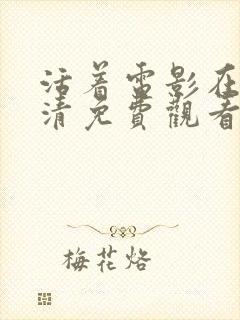 活着雷影在
清免費觀看
梅花烙